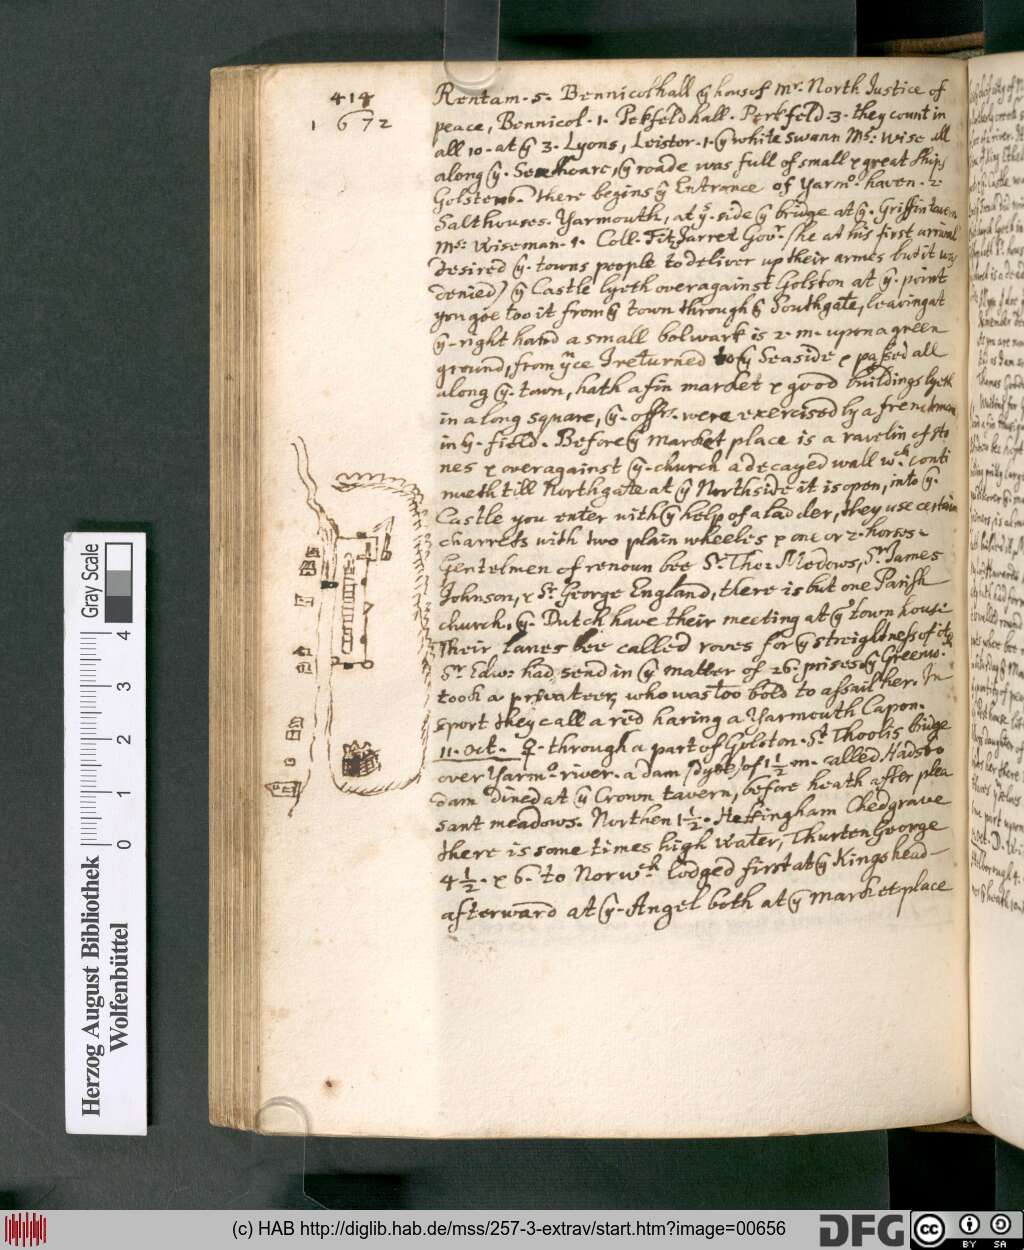 414
1672
Rentam . 5 . Bennicolhall ÿ hous of Mr. North Justice of
peace, Bennicol . 1 . Pekfeld hall . Perkfeld . 3 . they count in
all 10 . at ÿ 3 . Lyons, Leistor . 1 . ÿ white Swann Ms: Wise all
along ÿ . , ÿ roade was full of small & great Ships
there begins ÿ Entrance of Yarmo. haven . 2
Salthouses . Yarmouth, at side ÿ bridge at ÿ . Griffin tavern
Ms: Wiseman . 1 . Coll . Fitz Jarret Govr. (he at his first arrival
desired ÿ . towns people to deliver up their armes but it was
denied) ÿ Castle lyeth over against Golston at ÿ . point
you goe too it from ÿ town through ÿ Southgate, leaving at
ÿ . right hand a small bolwark is 2 . m . upon a green
ground, from yce I returned to ÿ Seaside & passed all
along ÿ . town, hath a fin market & good buildings lyeth
in a long square, ÿ . offrs. were exercised by a frenchman
in ÿ . field . Before ÿ market place is a ravelin of sto
nes & over against ÿ . church a decayed wall wch. conti
nueth till Northgate at ÿ Northside it is open, into ÿ .
Castle you enter with ÿ help of a ladder, they use certain
charrets with two plain wheeles & one or 2 . horses .
Gentelmen of renoun bee Sr. Tho: Medows, Sr. James
Johnson, & Sr. George England, there is but one Parish
church . ÿ . Dutch have their meeting at ÿ town house
Their lanes bee called rows for ÿ streightness of
Sr. Edw: had send in ÿ matter of 26 . prises ÿ Greenw .
took a privateer, who was too bold to assail her . In
sport they call a red haring a Yarmouth Capon .
11 . oct . ♀ . through a part of Golston . St. Thoolis bridge
over Yarmo. river . a dam (dyke) of 1 1/2 m . called Hadsco
dam dined at ÿ Crown tavern, before heath after plea
sant meadows . Northen 1 1/2 . Heffingham Chedgrave
there is some times high water, Thurten George
4 1/2 . & 6 . to Norwch. lodged first at ÿ Kingshead
afterward at ÿ . Angel both at ÿ market place
Herzog August Bibliothek
Wolfenbüttel
0 1 2 3 4
Gray Scale
(c) HAB http://diglib.hab.de/mss/257-3-extrav/start.htm?image=00656
DFG
cc
BY SA